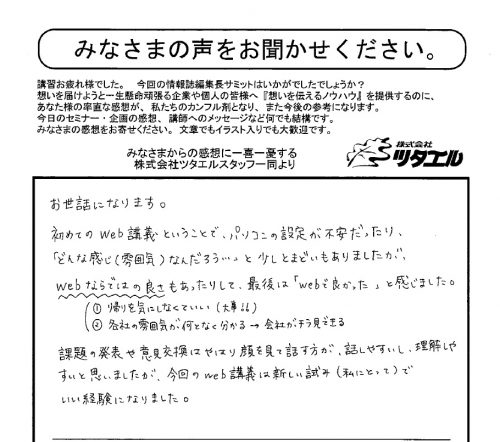 みなさまの声をお聞かせください。
講習お疲れ様でした。 今回の情報誌編集長サミットはいかがでしたでしょうか?
想いを届けようと一生懸命頑張る企業や個人の皆様へ『想いを伝えるノウハウ』を提供するのに、
あなた様の率直な感想が、私たちのカンフル剤となり、また今後の参考になります。
今日のセミナー・企画の感想、講師へのメッセージなど何でも結構です。
みなさまの感想をお寄せください。文章でもイラスト入りでも大歓迎です。
みなさまからの感想に一喜一憂する
株式会社ツタエルスタッフ一同より
株式会社
ツタエル
お世話になります。
初めてのWeb講義ということで、パソコンの設定が不安だったり、
「どんな感じ(雰囲気)なんだろう…」と少しとまどいもありましたが、
Webならではの良さもあったりして、最後は「webで良かった」と感じました。
① 帰りを気にしなくていい(大事!!)
② 各社の雰囲気が何となく分かる→会社がチラ見できる
課題の発表や意見交換はやはり顔を見て話す方が、話しやすいし、理解しや
すいと思いましたが、今回のweb講義は新しい試み(私にとって)で
いい経験になりました。